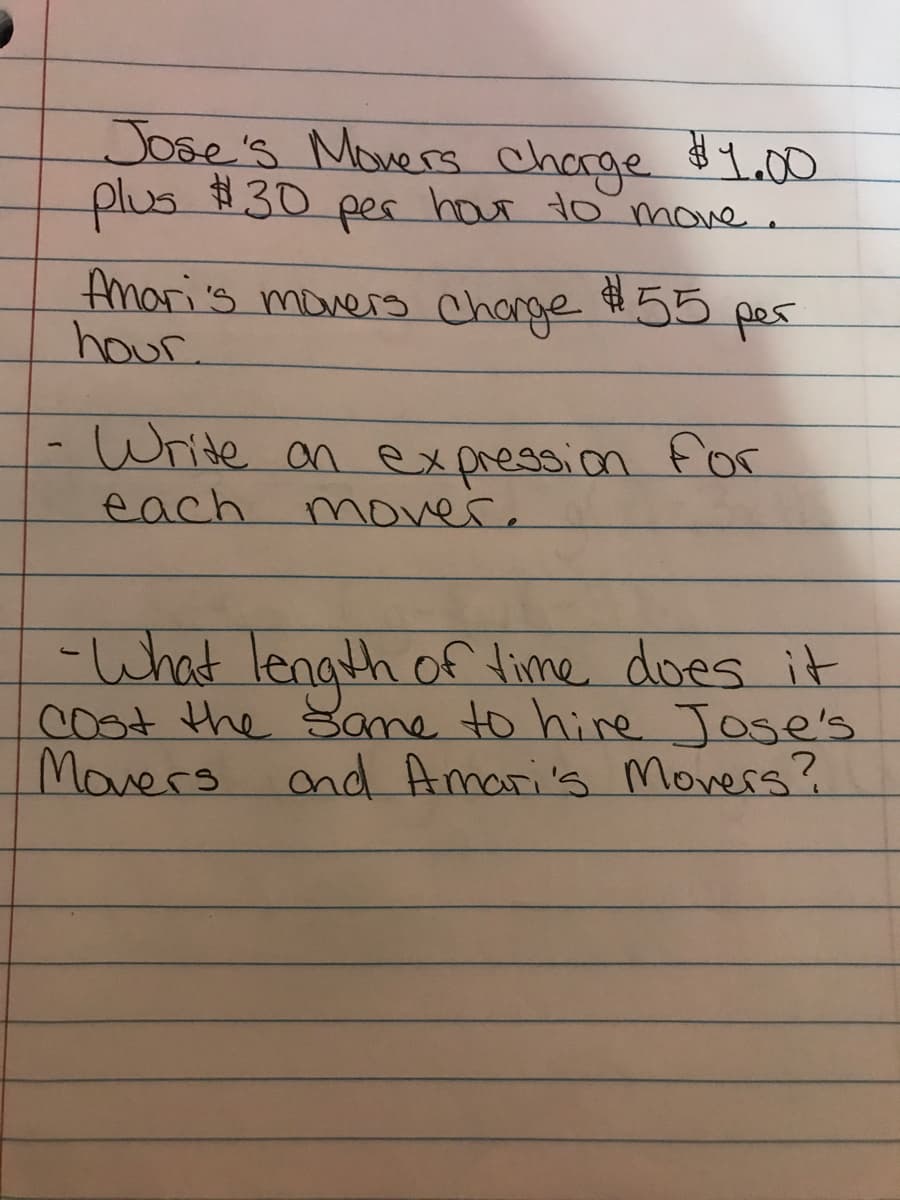 Jose's Movers charge $1.00
plus $30 per hour to move.
Amari's movers charge $55 per
hour.
- Write an expression for
each mover.
- What length of time does it
cost the same to hire Jose's
Movers and Amari's Movers?